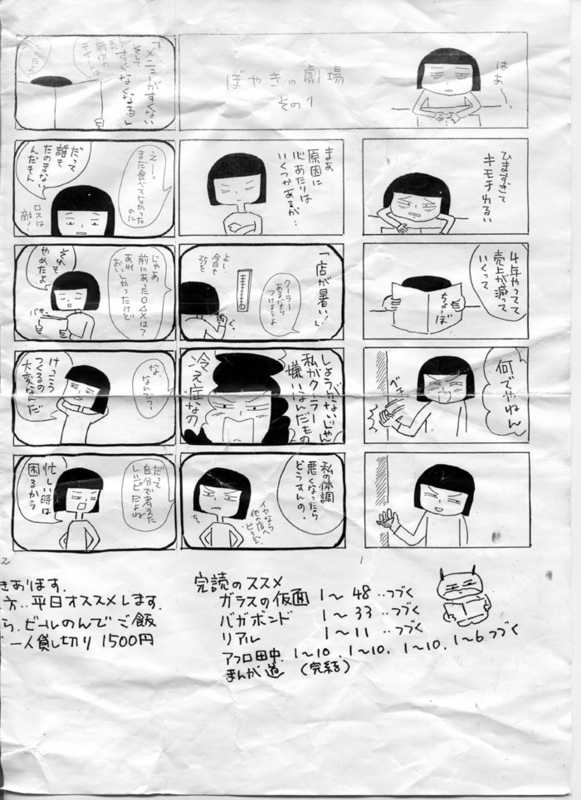 ぼやきの劇場
その1
はぁ…
ひますぎて
キモチわるい
4年やってて
売上が減って
いくって
ちょーぼ
何でやねん
まぁ
原因に
心あたりは
いくつかあるが…
「店が暑い!」
クーラー
あまりかけ
よし、
今日も
しょうがないじゃん
私がクーラー
嫌いなんだもの
冷え症なの
私の体調
悪くなったら
どうすんの。
イヤなら
他の店へ
どーぞ
「メニューがすくない
そして
すぐなくなる」
えー、
まだ食べてなかった
のに
だって
誰も
たのまない
んだもん
ロスは
敵!
じゃあ
前にあった□△×は?
あれ
おいしかったけど
それも
やめたよ
な、
なんで?
けっこう
つくるの
大変なんだ
だって
自分で考えた
レシピだよね
忙しい時は
困るから
2
1
きあります.
方..平日オススメします.
ら. ビールのんでご飯
一人貸し切り 1500円
完読のススメ
ガラスの仮面 1〜48 ..つづく
バガボンド 1〜33 ..つづく
リアル 1〜11 ..つづく
アフロ田中. 1〜10. 1〜10. 1〜10. 1〜6 つづく
まんが道 (完結)